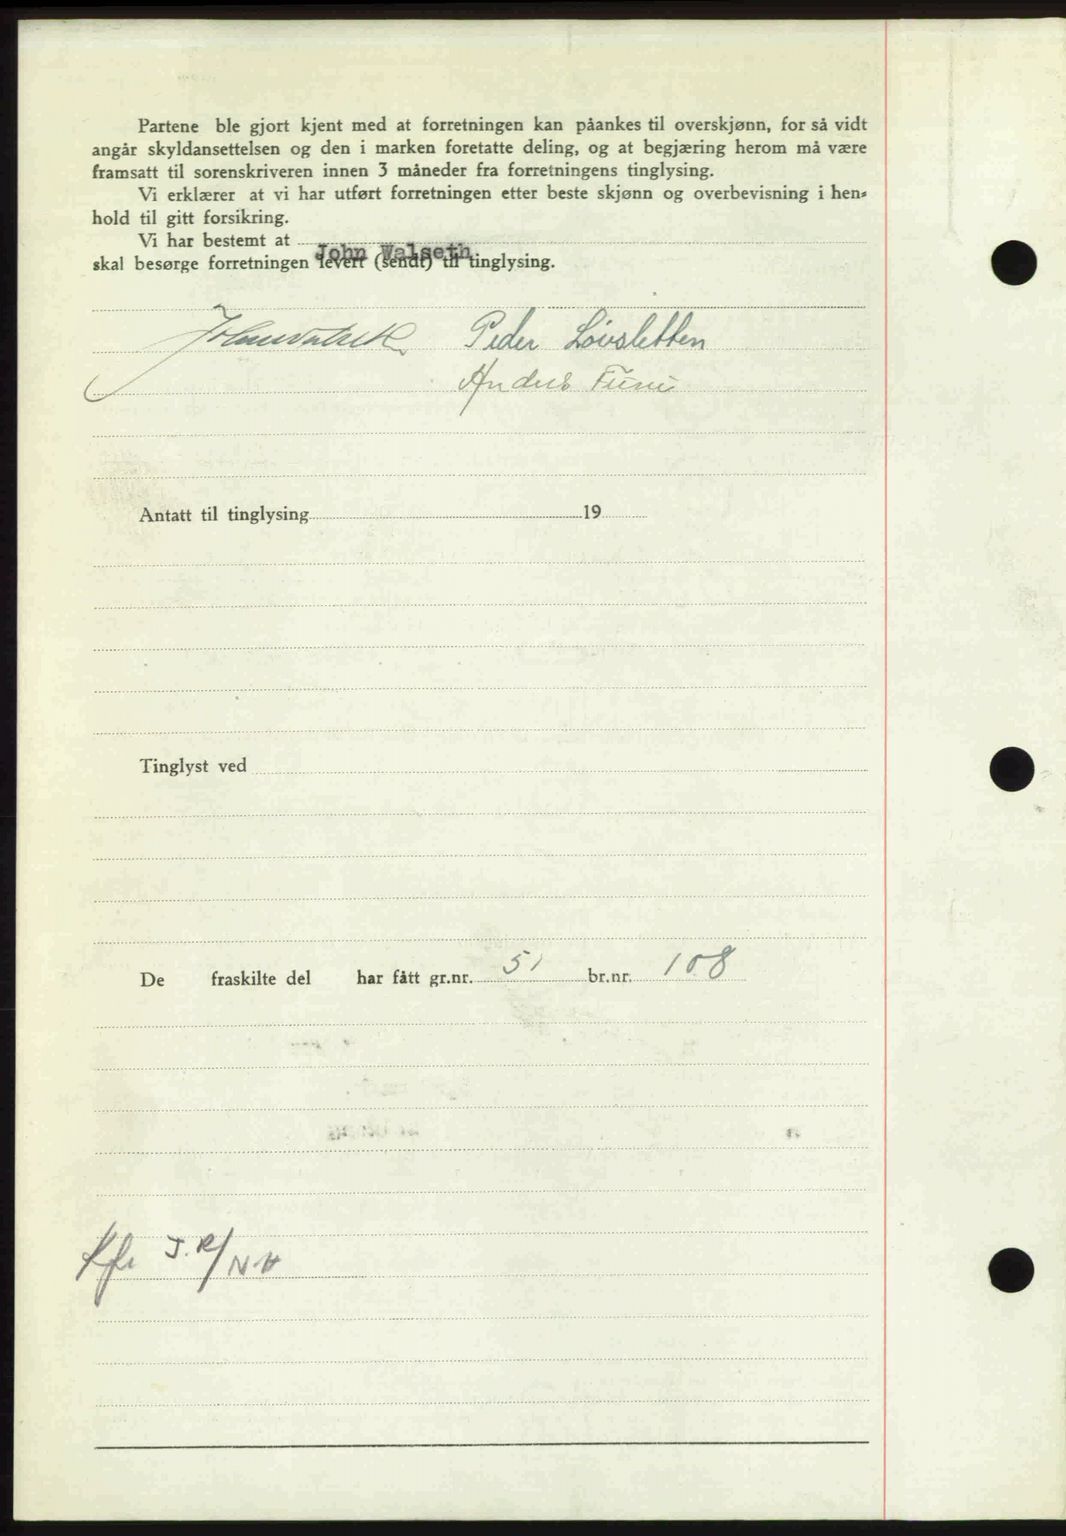 Partene ble gjort kjent med at forretningen kan påankes til overskjønn, for så vidt
angår skyldansettelsen og den i marken foretatte deling, og at begjæring herom må være
framsatt til sorenskriveren innen 3 måneder fra forretningens tinglysing.
Vi erklærer at vi har utført forretningen etter beste skjønn og overbevisning i hen-
hold til gitt forsikring.
Vi har bestemt at John Walseth
skal besørge forretningen levert (sendt) til tinglysing.
John Walseth Peder Løvsletten
Anders Furu
Antatt til tinglysing 19
Tinglyst ved
De fraskilte del har fått gr.nr. 51 br.nr. 108
J.R/NH